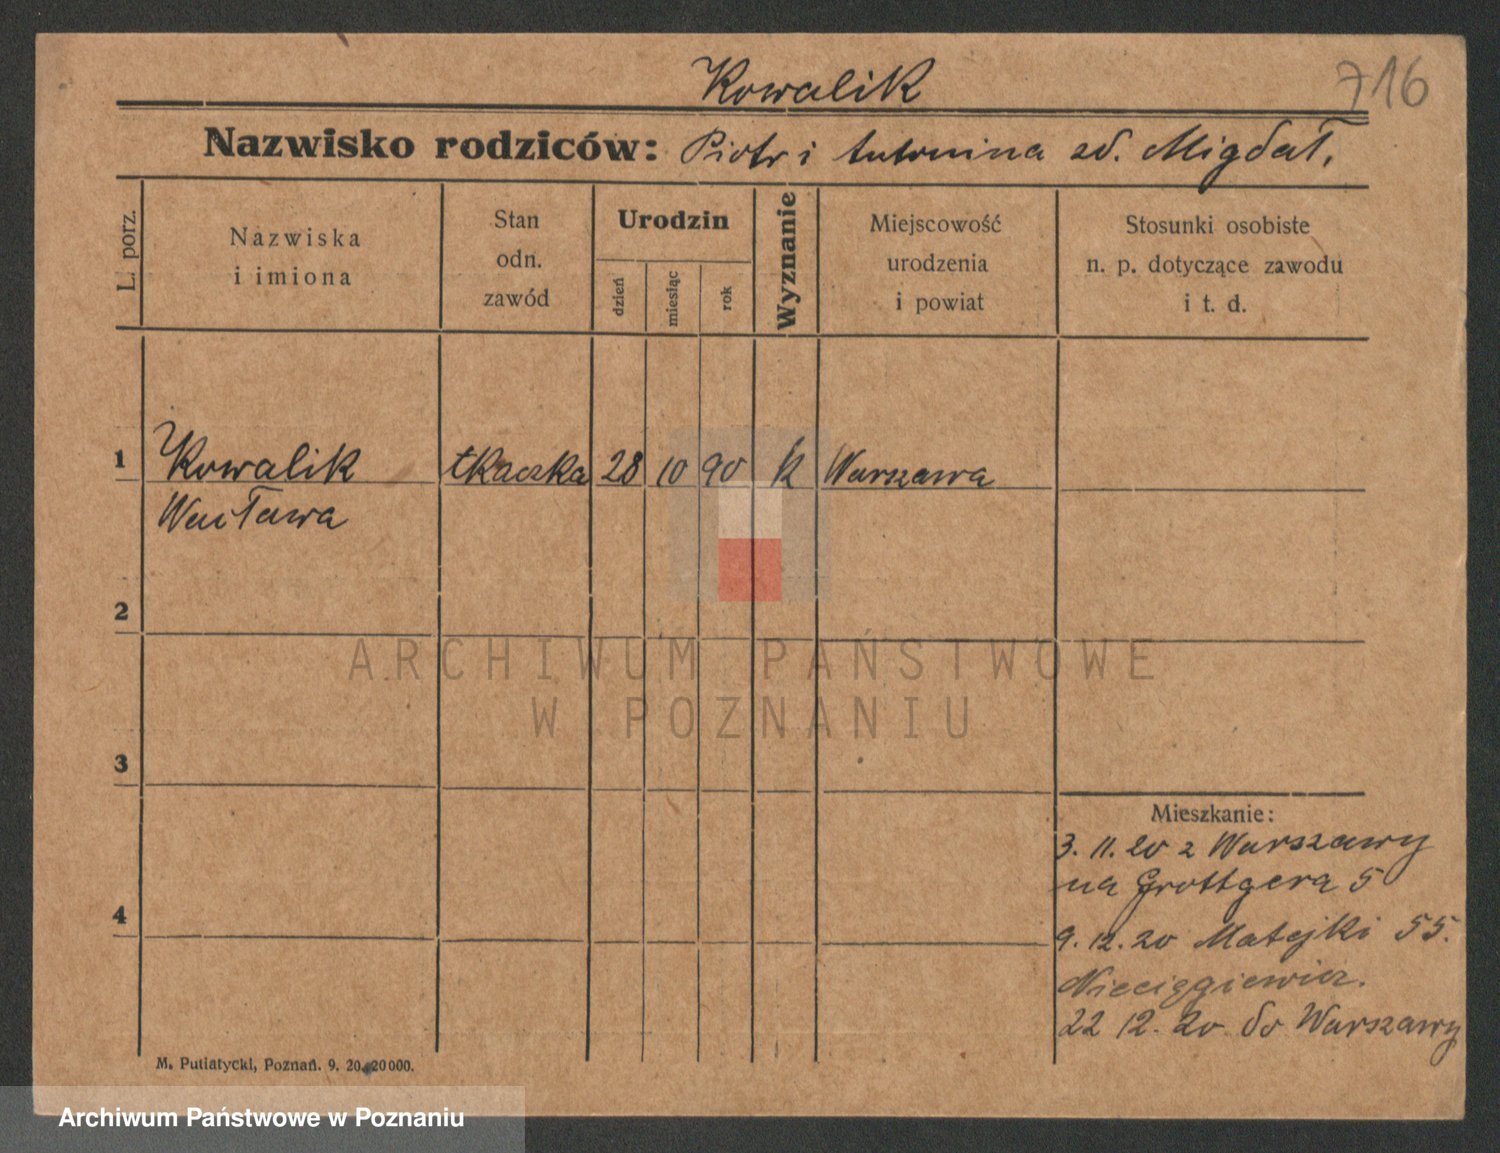 Kowalik
716
Nazwisko rodziców: Piotr i Antonina zd. Migdał.
L. porz.
Nazwiska
i imiona
Stan
odn.
zawód
Urodzin
dzień
miesiąc
rok
Wyznanie
Miejscowość
urodzenia
i powiat
Stosunki osobiste
n. p. dotyczące zawodu
i t. d.
1 Kowalik tkaczka 28 10 90 k Warszawa
Wacława
2
ARCHIWUM PAŃSTWOWE
W POZNANIU
3
Mieszkanie:
3. 11. 20 z Warszawy
na Grottgera 5
4
9. 12. 20 Matejki 55.
22 12. 20 do Warszawy
M. Putiatycki, Poznań. 9. 20. 20000.
Archiwum Państwowe w Poznaniu